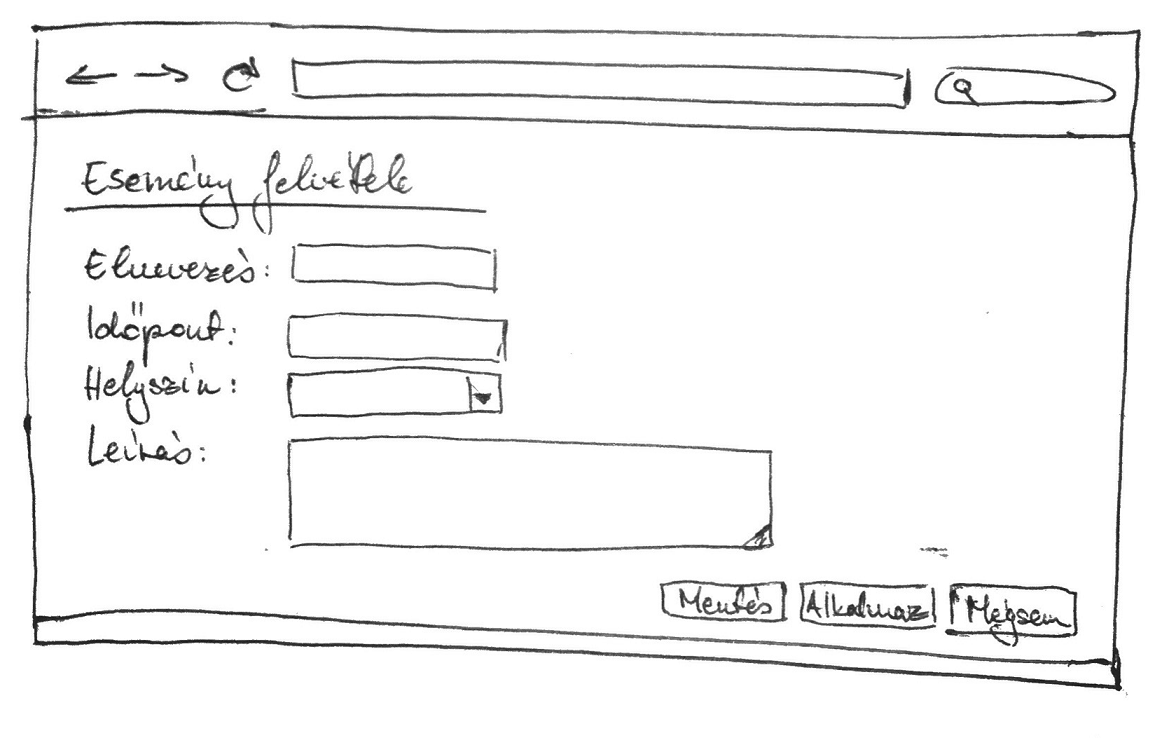 Esemény felvétele
Elnevezés:
Időpont:
Helyszín:
Leírás:
Mentés Alkalmaz Mégsem